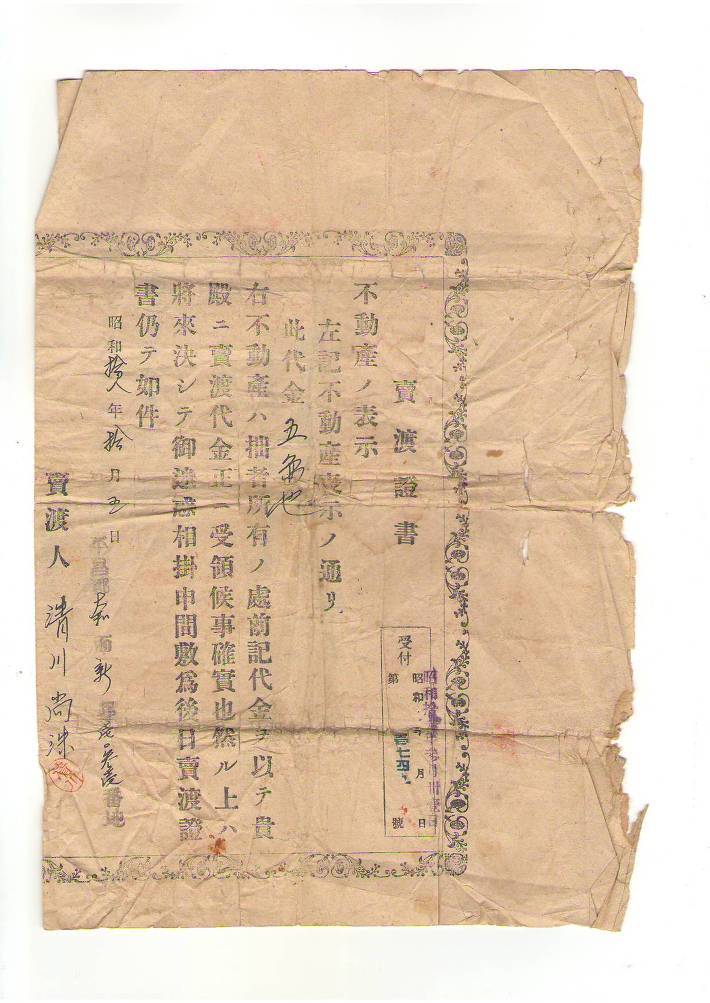 賣渡證書
不動產ノ表示
左記不動產表示ノ通リ
此代金
右不動產ハ拙者所有ノ處前記代金ヲ以テ貴
殿ニ賣渡代金正ニ受領候事確實也然ル上ハ
將來決シテ御迷惑相掛申間敷爲後日賣渡證
書仍テ如件
昭和拾八年拾月五日
面 新 里 番地
賣渡人 淸川尚洙
受付
昭和 年 月 日
第 號